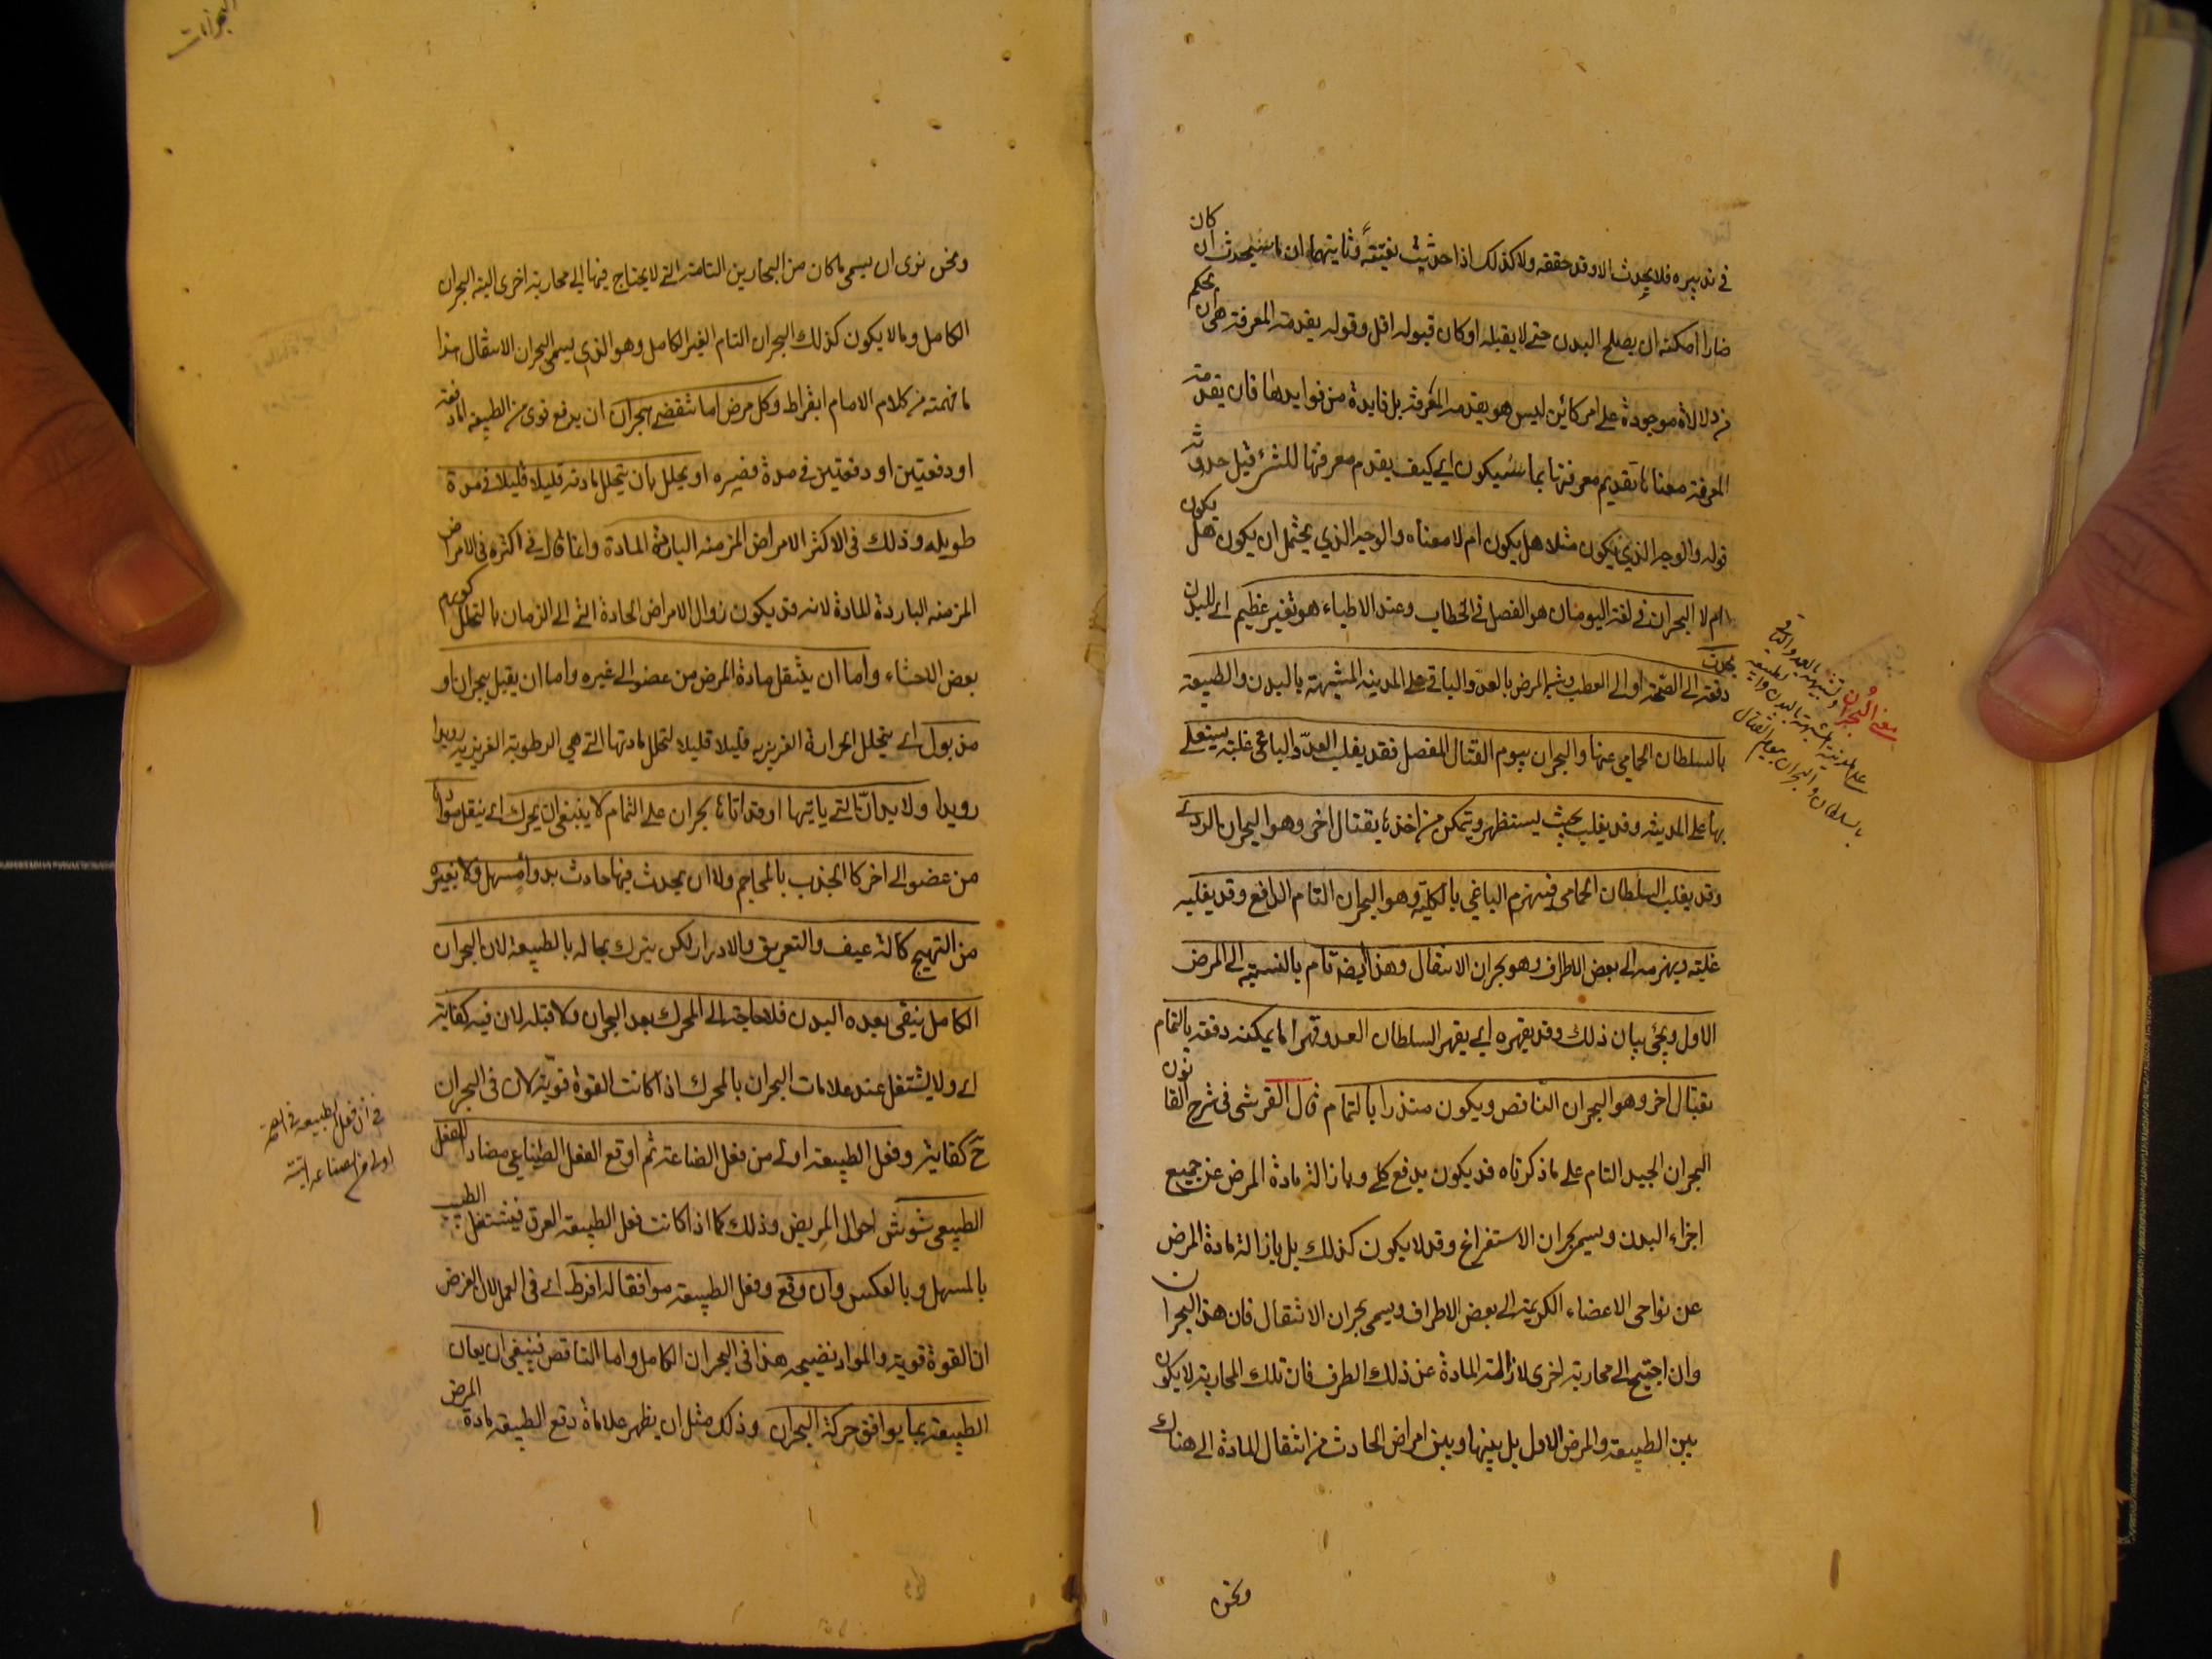 في تدبيره فلا يحدث الا وقد حققه ولا كذلك اذا حدثت بغتةً وثانيتهما ان ما سيحدث ان كان
ضارا امكنه ان يصلح البدن حتى لا يقبله او كان قبوله اقل وقوله بقدمة المعرفة هي ان يحكم
من دلالة موجودة على امر كائن ليس هو بقدمة المعرفة بل فايدة من فوايدها فان تقدمة
المعرفة معناها تقديم معرفتها بما سيكون اي كيف يقدم معرفتها للمشئ قبل حدوثه
قوله والوجه الذي يكون مثلا هل يكون ام لا معناه والوجه الذي يحتمل ان يكون هل يكون
ام لا البحران في لغة اليونان هو الفصل في الخطاب وعند الاطباء هو تغير عظيم اي للبدن يحدث
دفعة الى الصحة او الى العطب وشبه المرض بالعدو والباقي على المدينة المشبهة بالبدن والطبيعة
بالسلطان الحامي عنها والبحران بيوم القتال المفصل فقد يغلب العدو الباغي غلبة يستعلي
بها على المدينة وقد يغلب بحيث يستظهر ويتمكن من اخذها بقتال اخر وهو البحران الردئ
وقد يغلب السلطان الحامي فينهزم الباغي بالكلية وهو البحران التام الدافع وقد يغلبه
غلبة ويهزمه الى بعض الاطراف وهو بحران الانتقال وهذا ايضا تام بالنسبة الى المرض
الاول ويجئ بيان ذلك وقد يقهره اي يقهر السلطان العدو قهرا ما يمكنه دفعه بالتمام
بقتال اخر وهو البحران الناقص ويكون منذرا بالتمام قال القرشي في شرح القانون
البحران الجيد التام على ما ذكرناه قد يكون بدفع كلي وبازالة مادة المرض عن جميع
اجزاء البدن ويسمى بحران الاستفراغ وقد لا يكون كذلك بل بازالة مادة المرض
عن نواحي الاعضاء الكريمة الى بعض الاطراف ويسمى بحران الانتقال فان هذا البحران
وان احتيج الى محاربة اخرى لازالة المادة عن ذلك الطرف فان تلك المحاربة لا يكون
بين الطبيعة والمرض الاول بل بينها وبين امراض الحادث من انتقال المادة الى هناك
ونحن
معنى البحران وتشبيهه بالعدو والباقي
على المدينة المشبهة بالبدن والطبيعة
بالسلطان والبحران بيوم القتال
البحرانات
ونحن نرى ان يسمى ما كان من البحارين التامة التي لا يحتاج فيها الى محاربة اخرى البتة البحران
الكامل وما لا يكون كذلك البحران التام الغير الكامل وهو الذي يسمى البحران الانتقال هذا
ما فهمته من كلام الامام ابقراط وكل مرض اما تنقضي ببحران ان يدفع قوى من الطبيعة المادة دفعة
او دفعتين او دفعتين في مدة قصيره او يحلل بان يتحلل مادته قليلا قليلا في مدة
طويله وذلك في الاكثر الامراض المزمنه الباردة المادة وانما قال في اكثره في الامراض
المزمنه الباردة المادة لانه قد يكون زوال الامراض الحادة التي الى الزمان بالتحلل كورم
بعض الاحشاء واما ان ينتقل مادة المرض من عضو الى غيره واما ان يقبل ببحران او
من بول اي يتحلل الحرارة الغريزيه قليلا قليلا لتحلل مادتها التي هي الرطوبة الغريزيه رويدا
رويدا ولابدان التي ياتيها او قد اتاها بحران على التمام لا ينبغي ان يحرك اي ينقل موادها
من عضو الى اخر كالجذب بالمحاجم ولا ان يحدث فيها حادث بدواء مسهل ولا بغيره
من التهيج كالترعيف والتعريق والادرار لكن يترك بحاله بالطبيعة لان البحران
الكامل ينقى بعده البدن فلا حاجة الى المحرك بعد البحران ولا قبله لان فيه كفاية
اي ولا يشتغل عند علامات البحران بالمحرك اذا كانت القوة قوية لان في البحران
ح كفاية وفعل الطبيعة اولى من فعل الصناعة ثم اوقع الفعل الصناعي مضادا للفعل
الطبيعي شوش احوال المريض وذلك كما اذا كانت فعل الطبيعة العرق فيشتغل الطبيب
بالمسهل وبالعكس وان وقع وفعل الطبيعة موافقا له افرط اي في العمل لان الغرض
ان القوة قوية والمواد نضيجه هذا في البحران الكامل واما الناقص فينبغي ان يعان
الطبيعة بما يوافق حركة البحران وذلك مثل ان يظهر علامة دفع الطبيعه مادة المرض
في ان فعل الطبيعه في
اولى من الصناعه